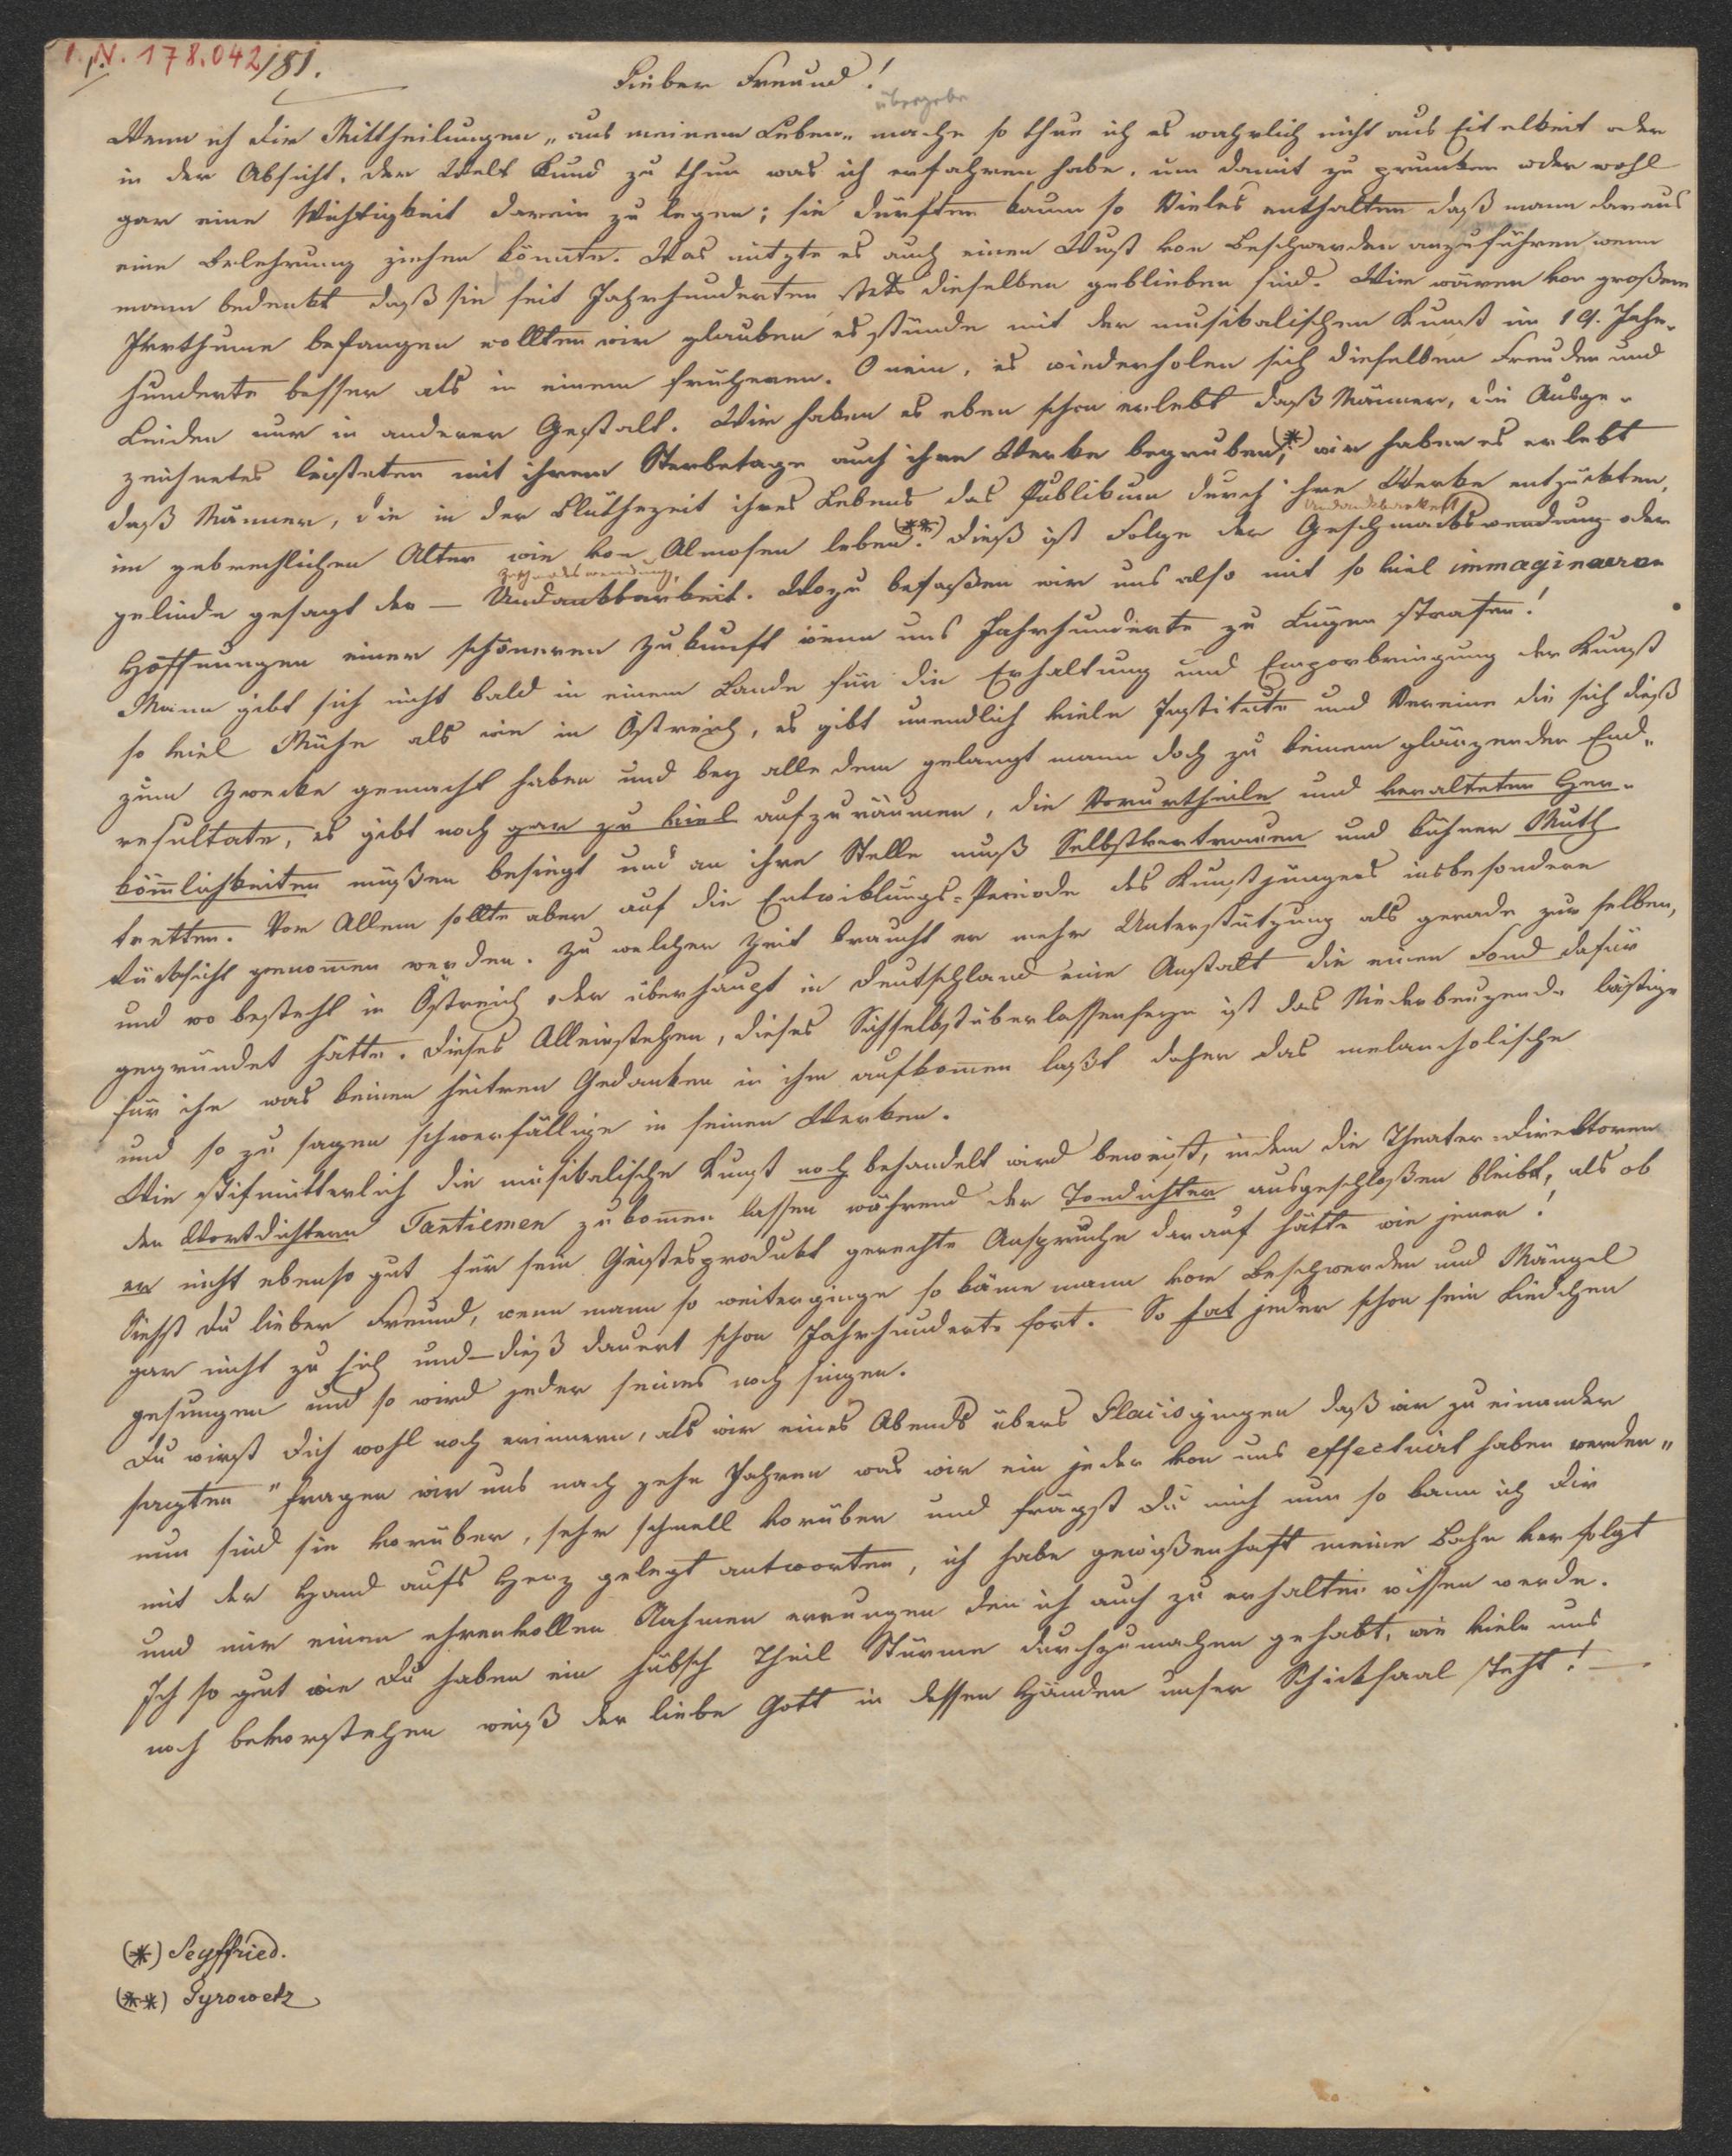 I. N. 178.042/81.
Lieber Freund!
übergebe
Wenn ich dir Mittheilungen „aus meinem Leben„ mache so thue ich es wahrlich nicht aus Eitelkeit oder
in der Absicht, der Welt Kund zu thun was ich erfahren habe, um damit zu prunken oder wohl
gar eine Wichtigkeit darein zu legen; sie dürften kaum so Vieles enthalten daß mann daraus
eine Belehrung ziehen könnte. Was nützte es auch einen Wust von Beschwerden anzuführen wenn
mann bedenkt daß sie seit Jahrhunderten stets dieselben geblieben sind. Wir wären von großem
Irrthume befangen wollten wir glauben es stünde mit der musikalischen Kunst im 19. Jahr-
hunderte besser als in einem früheren. O nein, es wiederholen sich dieselben Freuden und
Leiden nur in anderer Gestalt. Wir haben es eben schon erlebt daß Männer, die Ausge-
zeichnetes leisteten mit ihrem Sterbetage auch ihre Werke begruben(*), wir haben es erlebt
daß Männer, die in der Blüthezeit ihres Lebens das Publikum durch ihre Werke entzückten,
Undankbarkeit
im gebrechlichen Alter wie von Almosen leben(**). Dieß ist Folge der Geschmackswendung oder
Geschmackswendung,
gelinde gesagt der — Undankbarkeit. Wozu befaßen wir uns also mit so viel immaginairen
Hoffnungen einer schöneren Zukunft wenn uns Jahrhunderte zu Lügen strafen!
Mann gibt sich nicht bald in einem Lande für die Erhaltung und Emporbringung der Kunst
so viel Mühe als wie in Östreich, es gibt unendlich viele Institute und Vereine die sich dieß
zum Zwecke gemacht haben und bey alle dem gelangt mann doch zu keinem glänzenden End-
resultate, es gibt noch gar zu viel aufzuräumen, die Vorurtheile und veralteten Her-
kömmlichkeiten müßen besiegt und an ihre Stelle muß Selbstvertrauen und kühner Muth
tretten. Vor Allem sollte aber auf die Entwiklungs-Periode des Kunstjüngers insbesondere
Rücksicht genommen werden. Zu welcher Zeit braucht er mehr Unterstützung als gerade zur selben,
und wo besteht in Östreich oder überhaupt in Deutschland eine Anstalt die einen Fond dafür
gegründet hätte. Dieses Alleinstehen, dieses Sichselbstüberlassenseyn ist das Niederbeugende lästige
für ihn was keinen heitren Gedanken in ihm aufkommen laßt daher das melancholische
und so zu sagen schwerfällige in seinen Werken.
Wie stifmütterlich die musikalische Kunst noch behandelt wird beweist, indem die Theater-Direktoren
den Wortdichtern Tantiemen zukommen lassen während der Tondichter ausgeschloßen bleibt, als ob
er nicht ebenso gut für sein Geistesprodukt gerechte Ansprüche darauf hätte wie jener!
Siehst du lieber Freund, wenn mann so weiterginge so käme mann vor Beschwerden und Mängel
gar nicht zu sich und — dieß dauert schon Jahrhunderte fort. So hat jeder schon sein Liedchen
gesungen und so wird jeder seines noch singen.
Du wirst dich wohl noch erinnern, als wir eines Abends übers Glacis gingen daß wir zu einander
sagten "fragen wir uns nach zehn Jahren was wir ein jeder von uns effectuirt haben werden„
nun sind sie vorüber, sehr schnell vorüber und frägst du mich nun so kann ich dir
mit der Hand aufs Herz gelegt antworten, ich habe gewißenhaft meine Bahn verfolgt
und mir einen ehrenvollen Nahmen errungen den ich auch zu erhalten wissen werde.
Ich so gut wie Du haben ein hübsch Theil Stürme durchzumachen gehabt, wie viele uns
noch bevorstehen weiß der liebe Gott in dessen Händen unser Schicksaal steht! —
(*) Seyffried.
(**) Gyrowetz